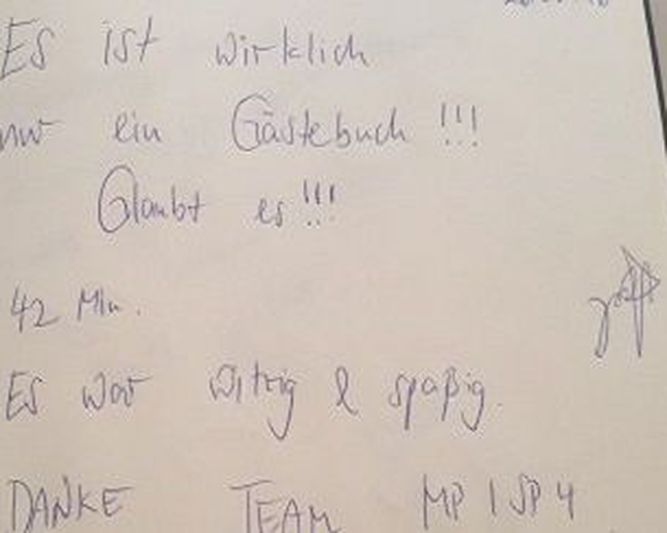 Es ist wirklich
nur ein Gästebuch !!!
Glaubt es!!!
42 Min.
Es war witzig & spaßig.
DANKE TEAM MP 1 SP 4